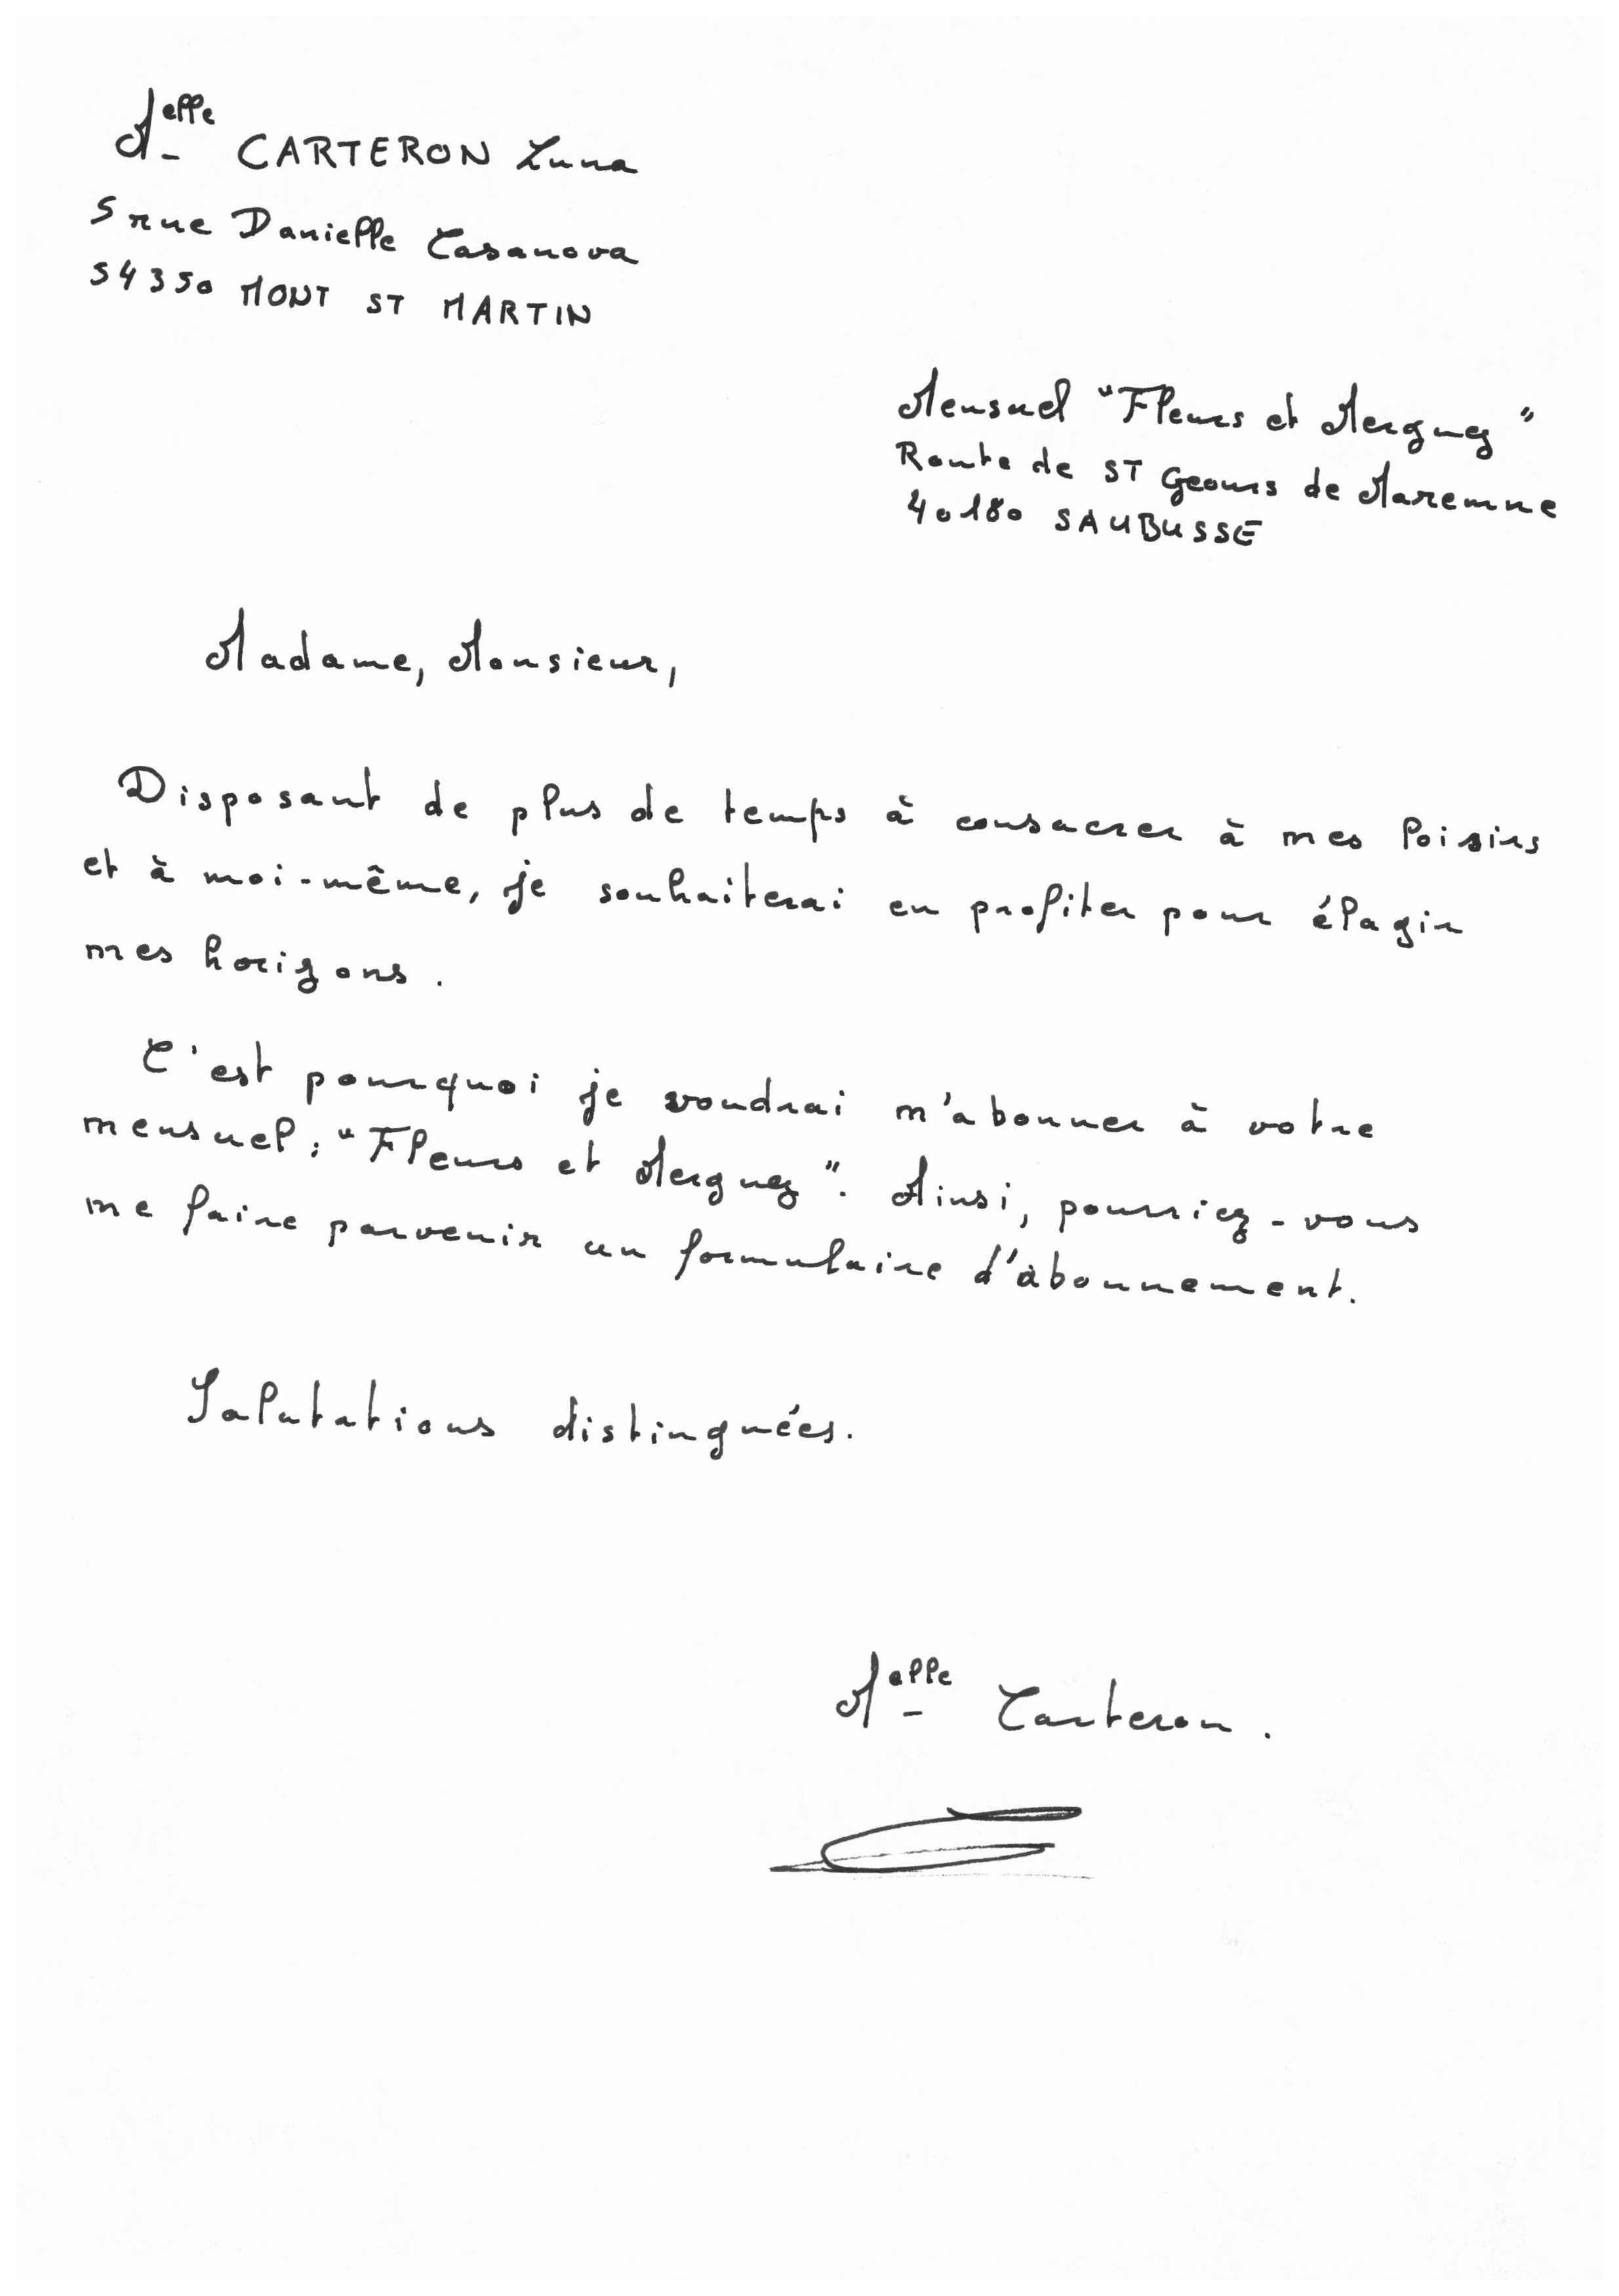 Melle CARTERON Luna
5 rue Danielle Casanova
54350 MONT ST MARTIN
Mensuel "Fleurs et Merguez"
Route de ST Geours de Maremne
40180 SAUBUSSE
Madame, Monsieur,
Disposant de plus de temps à consacrer à mes loisirs
et à moi-même, je souhaiterai en profiter pour élagir
mes horizons.
C'est pourquoi je voudrai m'abonner à votre
mensuel : "Fleurs et Merguez". Ainsi, pourriez-vous
me faire parvenir un formulaire d'abonnement.
Salutations distinguées.
Melle Carteron.